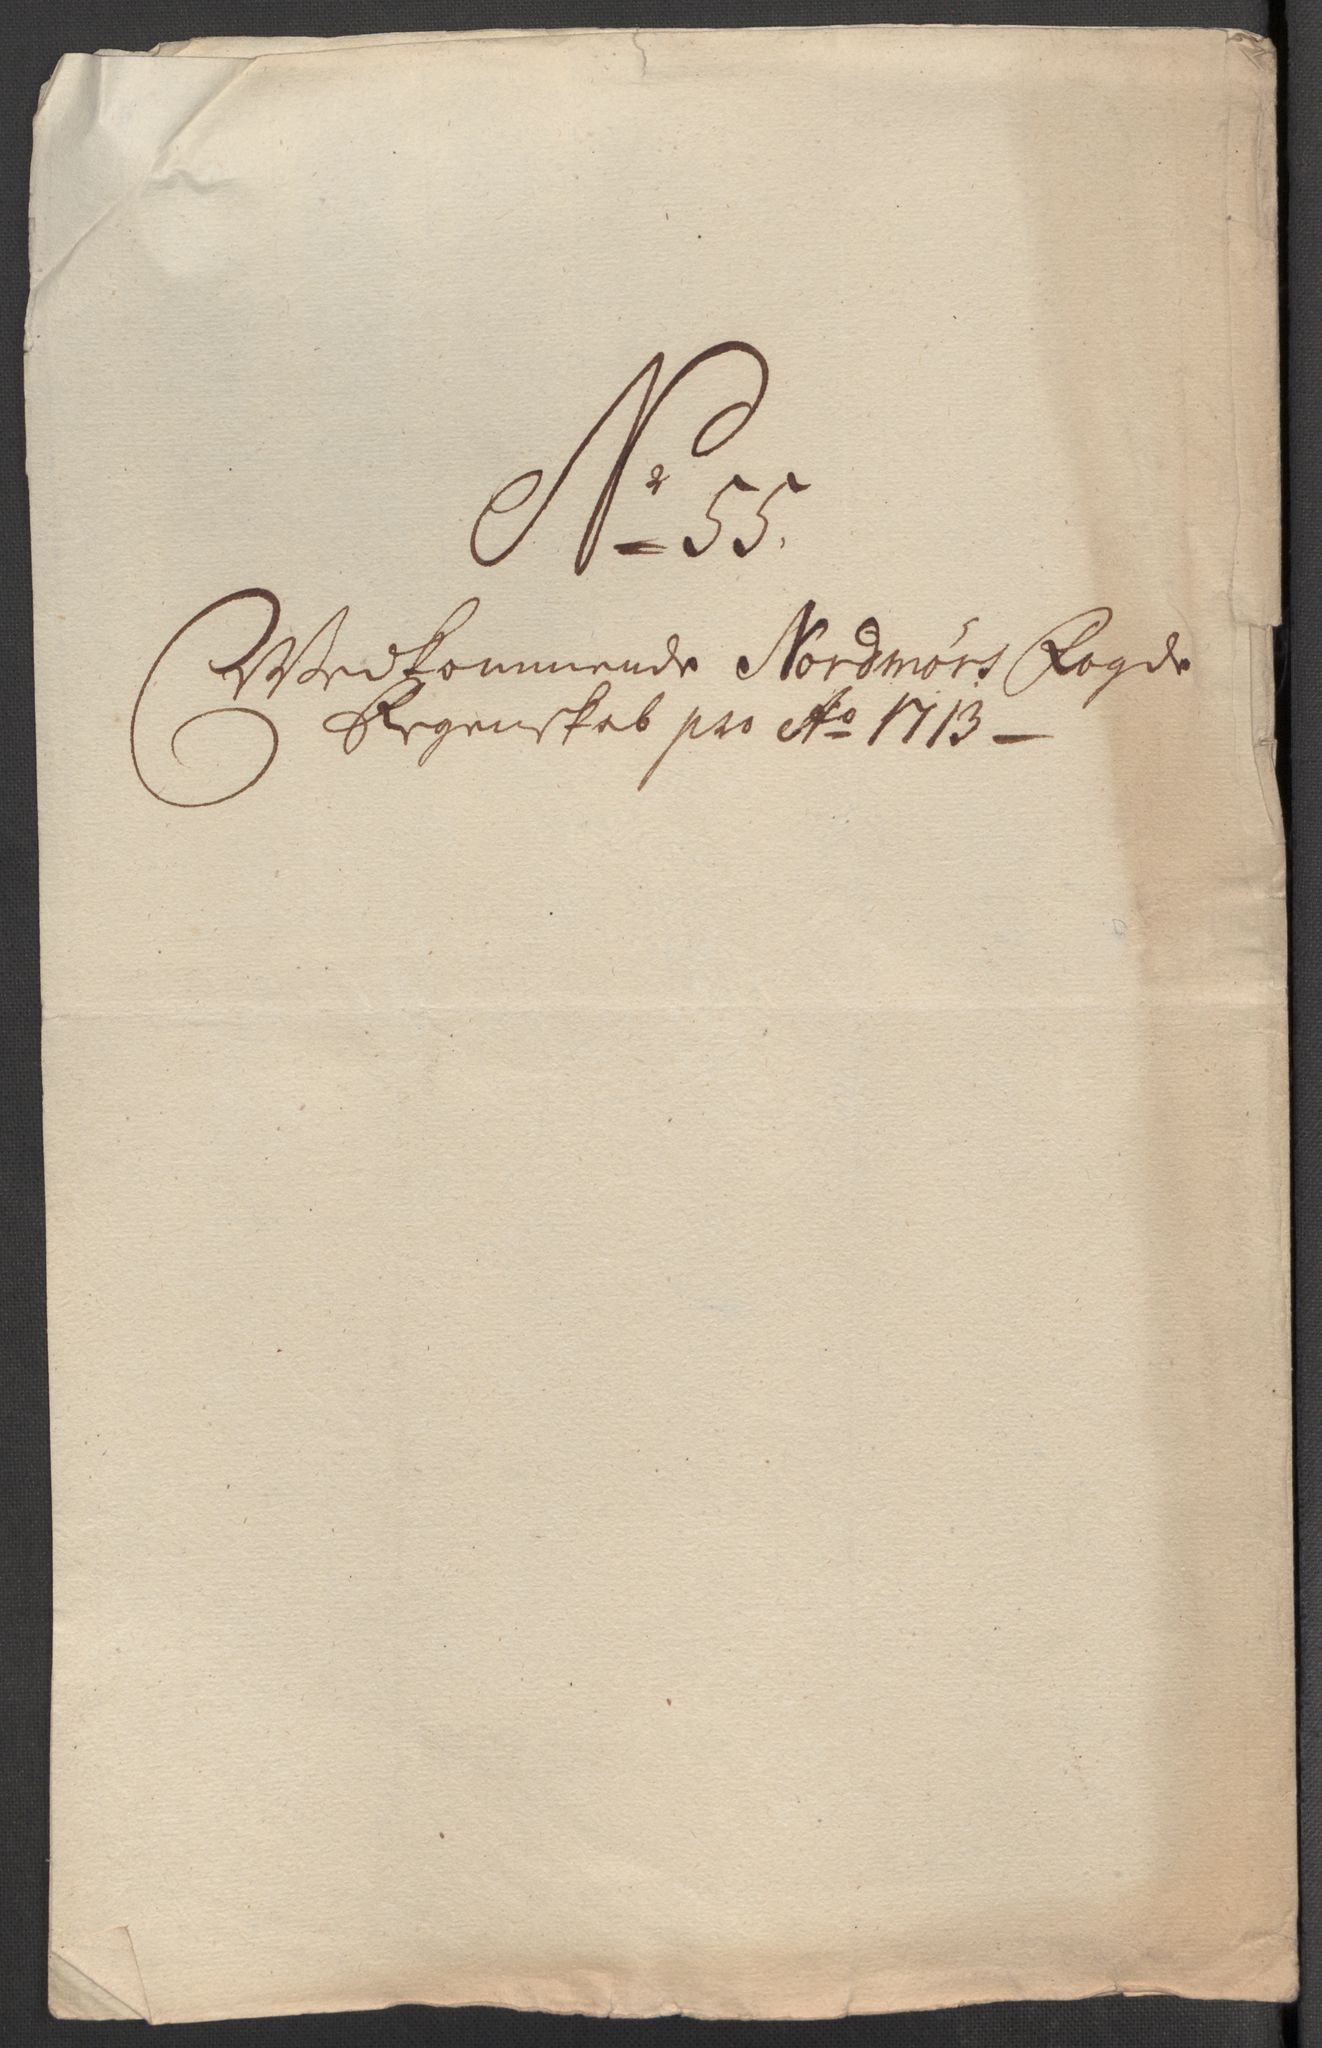 No 55.
Vedkommende Nordmørs Fogde
Regenskab pro Ao 1713 —